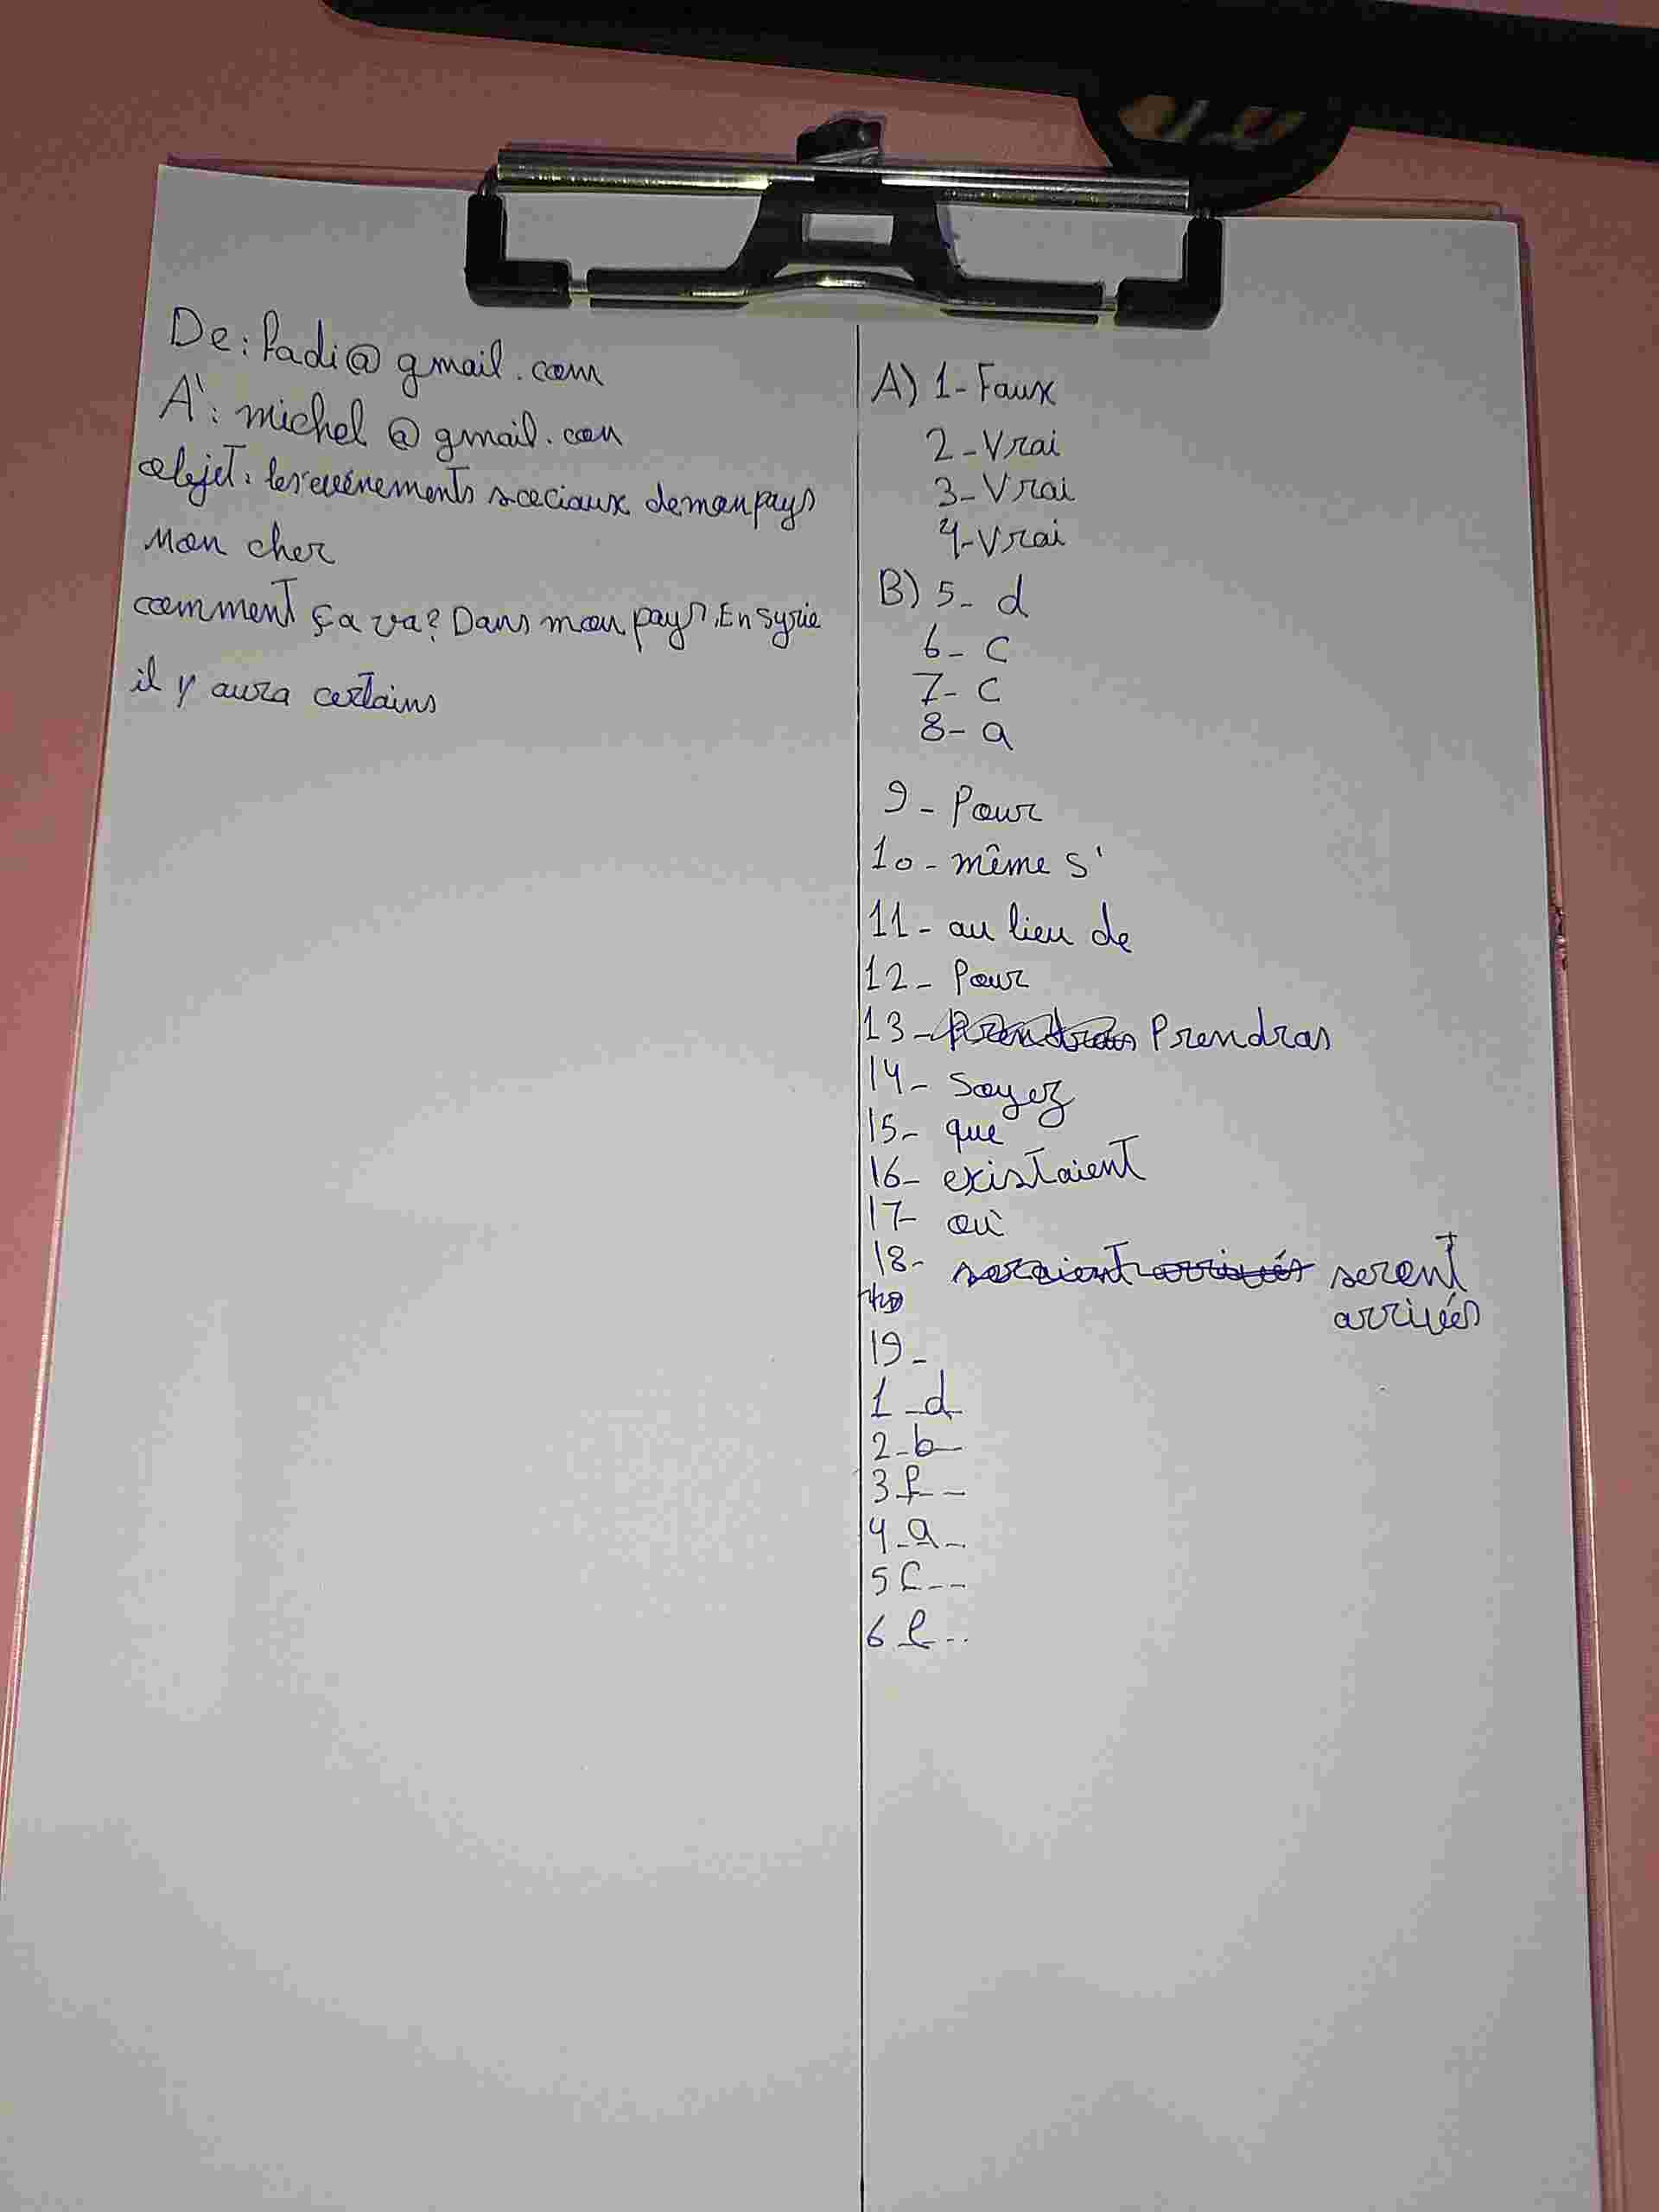 De: fadi@gmail.com
A': michel@gmail.com
objet: les événements sociaux de mon pays
Mon cher
comment ça va? Dans mon pays, En Syrie
il y aura certains
A) 1- Faux
2- Vrai
3- Vrai
4- Vrai
B) 5- d
6- c
7- c
8- a
9- Pour
10- même s'
11- au lieu de
12- Pour
13- Prendras
14- Soyez
15- que
16- existaient
17- où
18- seraient arrivés seront
arrivés
19-
1 d
2 b
3 f
4 a
5 c
6 e